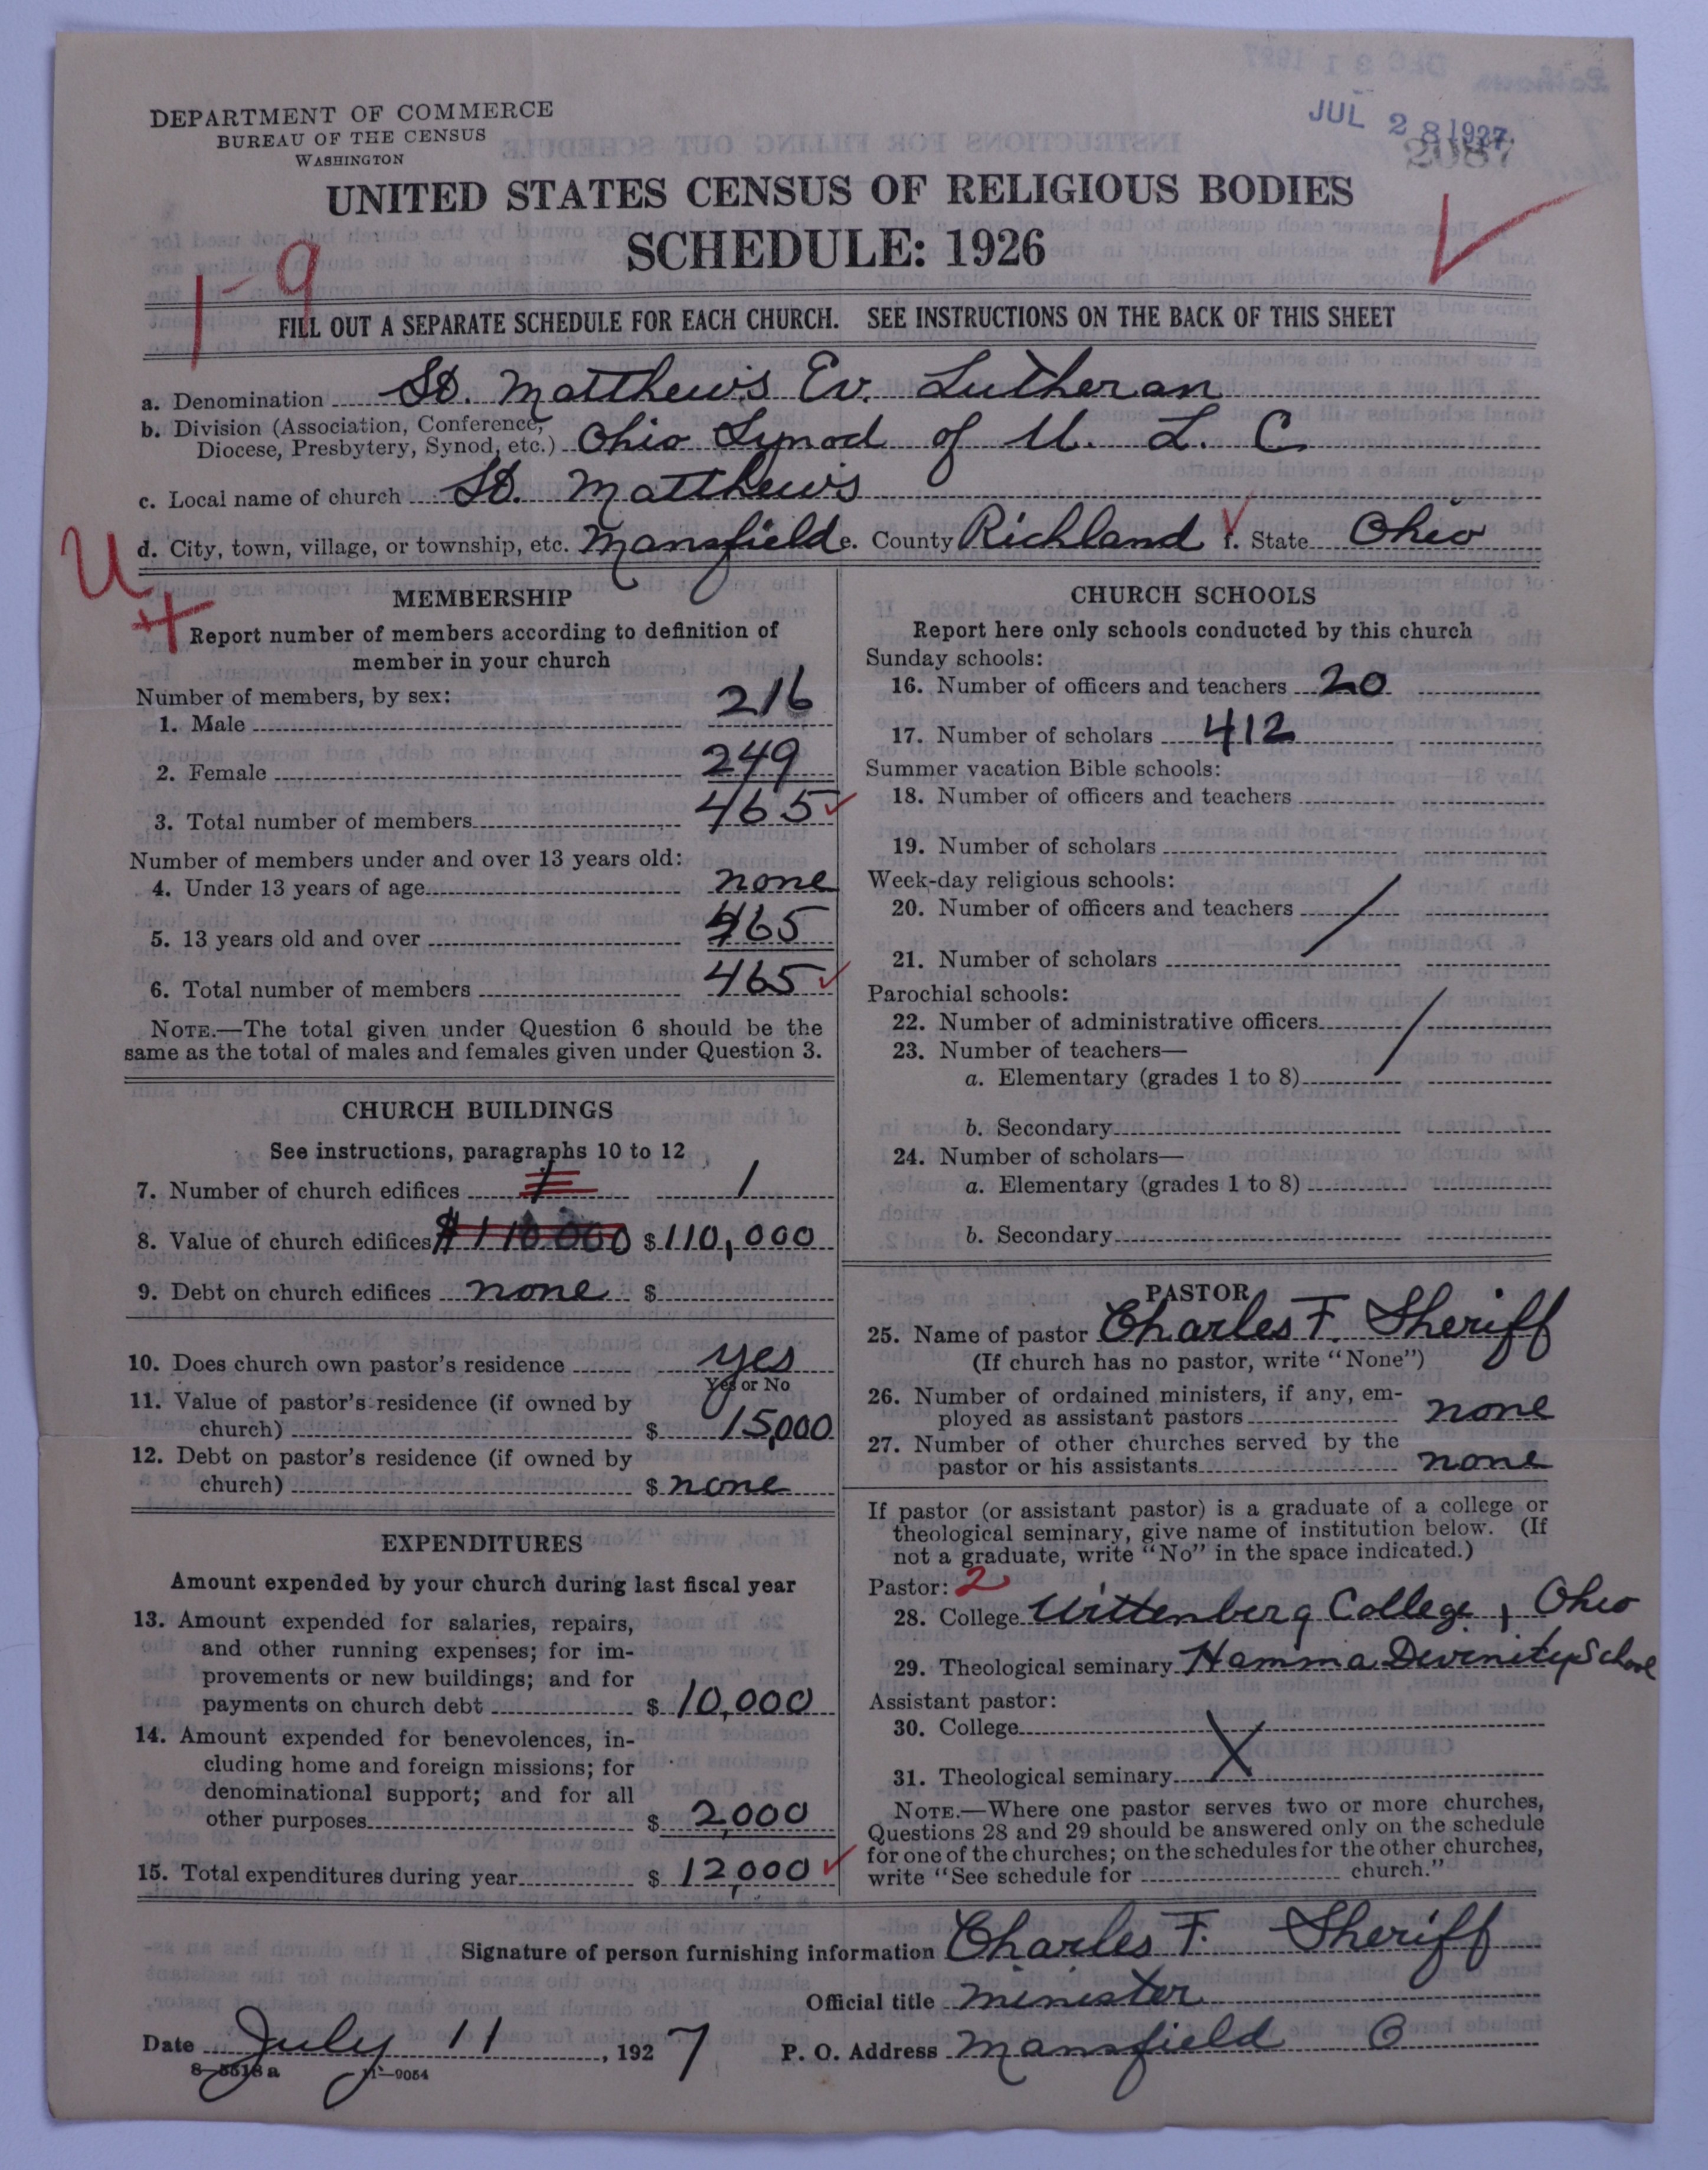 DEPARTMENT OF COMMERCE
BUREAU OF THE CENSUS
WASHINGTON
JUL 28 1927
2087
UNITED STATES CENSUS OF RELIGIOUS BODIES
SCHEDULE: 1926
1-9
FILL OUT A SEPARATE SCHEDULE FOR EACH CHURCH. SEE INSTRUCTIONS ON THE BACK OF THIS SHEET
a. Denomination St. Matthew's Ev. Lutheran
b. Division (Association, Conference,
Diocese, Presbytery, Synod, etc.) Ohio Synod of U. L. C
c. Local name of church St. Matthew's
d. City, town, village, or township, etc. Mansfield e. County Richland f. State Ohio
U
4
MEMBERSHIP
Report number of members according to definition of
member in your church
Number of members, by sex:
1. Male 216
2. Female 249
3. Total number of members 465
Number of members under and over 13 years old:
4. Under 13 years of age none
5. 13 years old and over 465
6. Total number of members 465
NOTE.—The total given under Question 6 should be the
same as the total of males and females given under Question 3.
CHURCH BUILDINGS
See instructions, paragraphs 10 to 12
7. Number of church edifices 1 1
8. Value of church edifices $110.000 $110,000
9. Debt on church edifices none $
10. Does church own pastor's residence yes
Yes or No
11. Value of pastor's residence (if owned by
church) $ 15,000
12. Debt on pastor's residence (if owned by
church) $ none
EXPENDITURES
Amount expended by your church during last fiscal year
13. Amount expended for salaries, repairs,
and other running expenses; for im-
provements or new buildings; and for
payments on church debt $ 10,000
14. Amount expended for benevolences, in-
cluding home and foreign missions; for
denominational support; and for all
other purposes $ 2,000
15. Total expenditures during year $ 12,000
CHURCH SCHOOLS
Report here only schools conducted by this church
Sunday schools:
16. Number of officers and teachers 20
17. Number of scholars 412
Summer vacation Bible schools:
18. Number of officers and teachers
19. Number of scholars
Week-day religious schools:
20. Number of officers and teachers
21. Number of scholars
Parochial schools:
22. Number of administrative officers
23. Number of teachers—
a. Elementary (grades 1 to 8)
b. Secondary
24. Number of scholars—
a. Elementary (grades 1 to 8)
b. Secondary
PASTOR
25. Name of pastor Charles F. Sheriff
(If church has no pastor, write "None")
26. Number of ordained ministers, if any, em-
ployed as assistant pastors none
27. Number of other churches served by the
pastor or his assistants none
If pastor (or assistant pastor) is a graduate of a college or
theological seminary, give name of institution below. (If
not a graduate, write "No" in the space indicated.)
Pastor: 2
28. College Wittenberg College, Ohio
29. Theological seminary Hamma Divinity School
Assistant pastor:
30. College
31. Theological seminary
X
NOTE.—Where one pastor serves two or more churches,
Questions 28 and 29 should be answered only on the schedule
for one of the churches; on the schedules for the other churches,
write "See schedule for church."
Signature of person furnishing information Charles F. Sheriff
Official title Minister
Date July 11, 1927 P. O. Address Mansfield O
8-5518a 11-9054